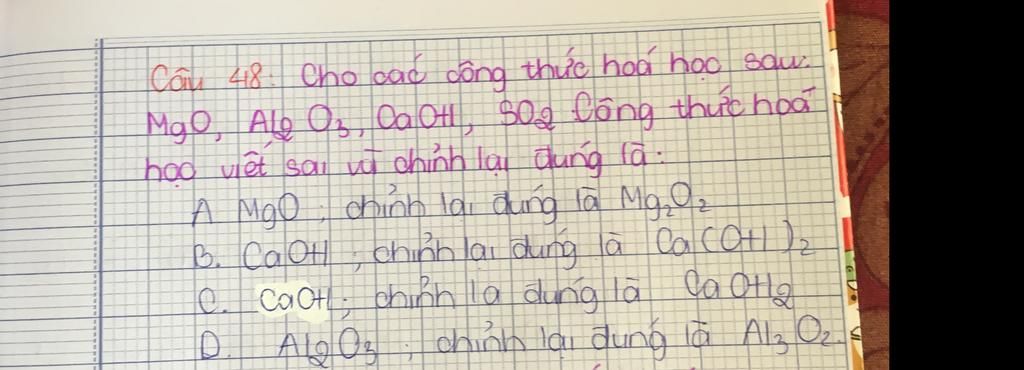 Câu 48: Cho các công thức hoá học sau:
MgO, Al2O3, CaOH, SO2 Công thức hoá
học viết sai và chỉnh lại đúng là:
A MgO; chỉnh lại đúng là Mg₂O₂
B. CaOH; chỉnh lại đúng là Ca(OH)₂
C. CaOH; chỉnh lạ đúng là CaOH2
D. Al2O3; chỉnh lại đúng là Al₃O₂.